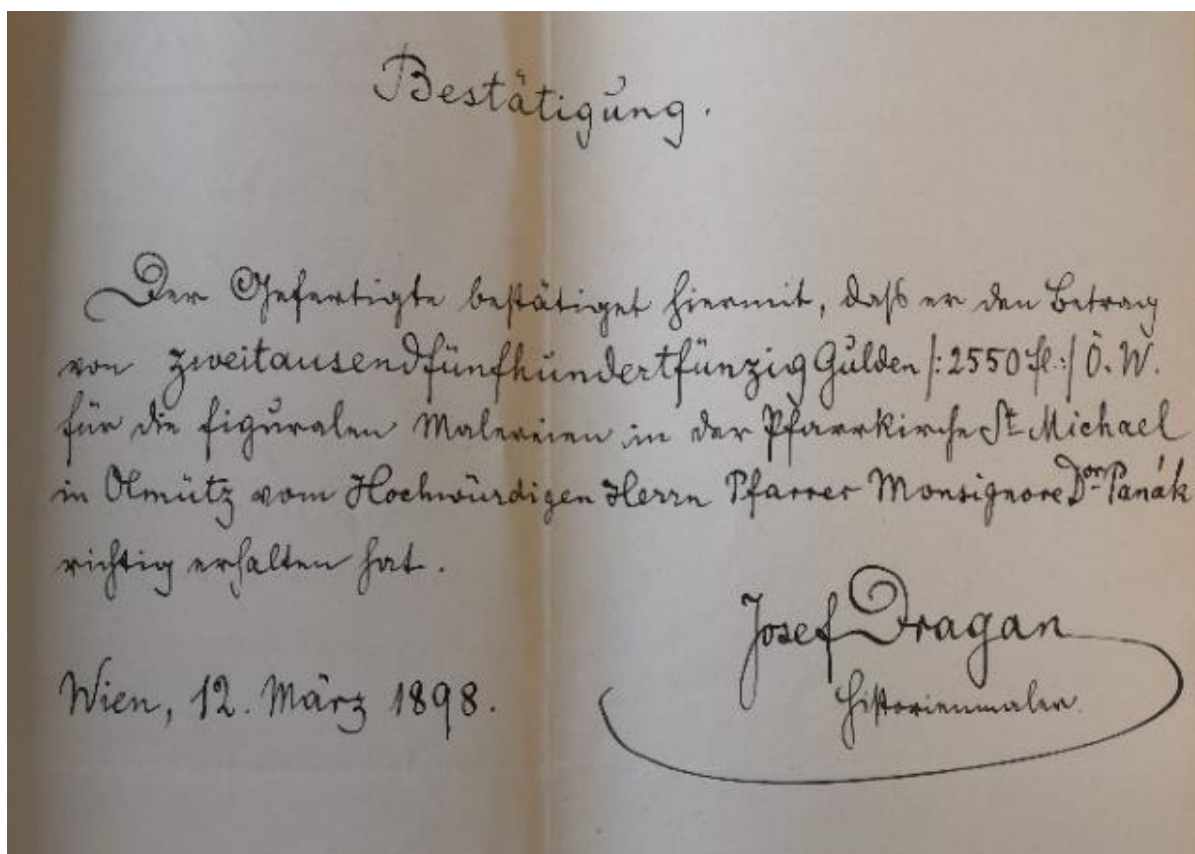 Bestätigung.
Der Gefertigte bestätiget hiermit, daß er den Betrag
von zweitausendfünfhundertfünzig Gulden /: 2550 fl :/ Ö. W.
für die figuralen Malereien in der Pfarrkirche St. Michael
in Olmütz vom Hochwürdigen Herrn Pfarrer Monsignore Dor. Panák
richtig erhalten hat.
Josef Dragan
Historienmaler.
Wien, 12. März 1898.